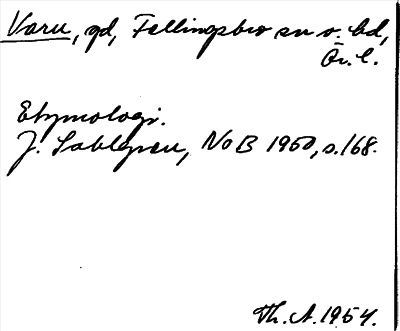 Varu, gd, Fellingsbro sn o. bd,
Ör. l.
Etymologi.
J. Sahlgren, NoB 1950, s. 168.
Th. A. 1954.